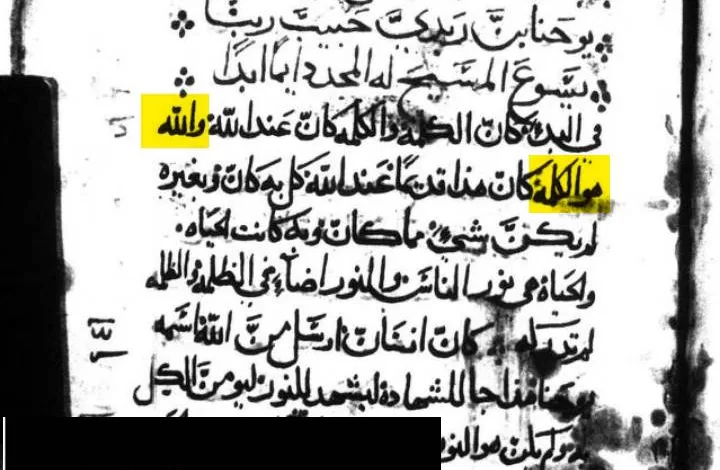 يوحنا بن زبدي حبيب ربنا
يسوع المسيح له المجد دايما ابدا
في البدء كان الكلمه والكلمه كان عند الله والله
هو الكلمة كان هذا قديمًا عند الله كل به كان وبغيره
لم يكن شيء مما كان وبه كانت الحياه
والحياه هي نور الناس والنور اضاء في الظلمه والظلمه
لم تدركه كان انسان ارسل من الله اسمه
يوحنا هذا جا للشهادة ليشهد للنور ليومن الكل
به ولم يكن هو النور